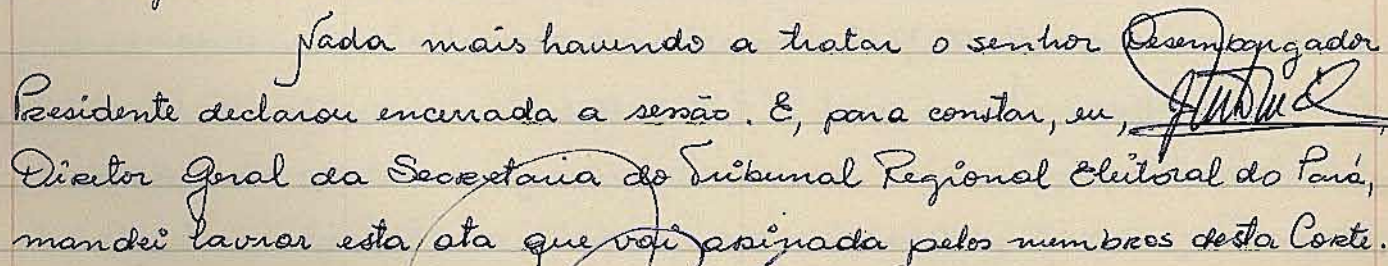 Nada mais havendo a tratar o senhor Desembargador
Presidente declarou encerrada a sessão. E, para constar, eu,
Diretor Geral da Secretaria do Tribunal Regional Eleitoral do Pará,
mandei lavrar esta ata que vai assinada pelos membros desta Corte.